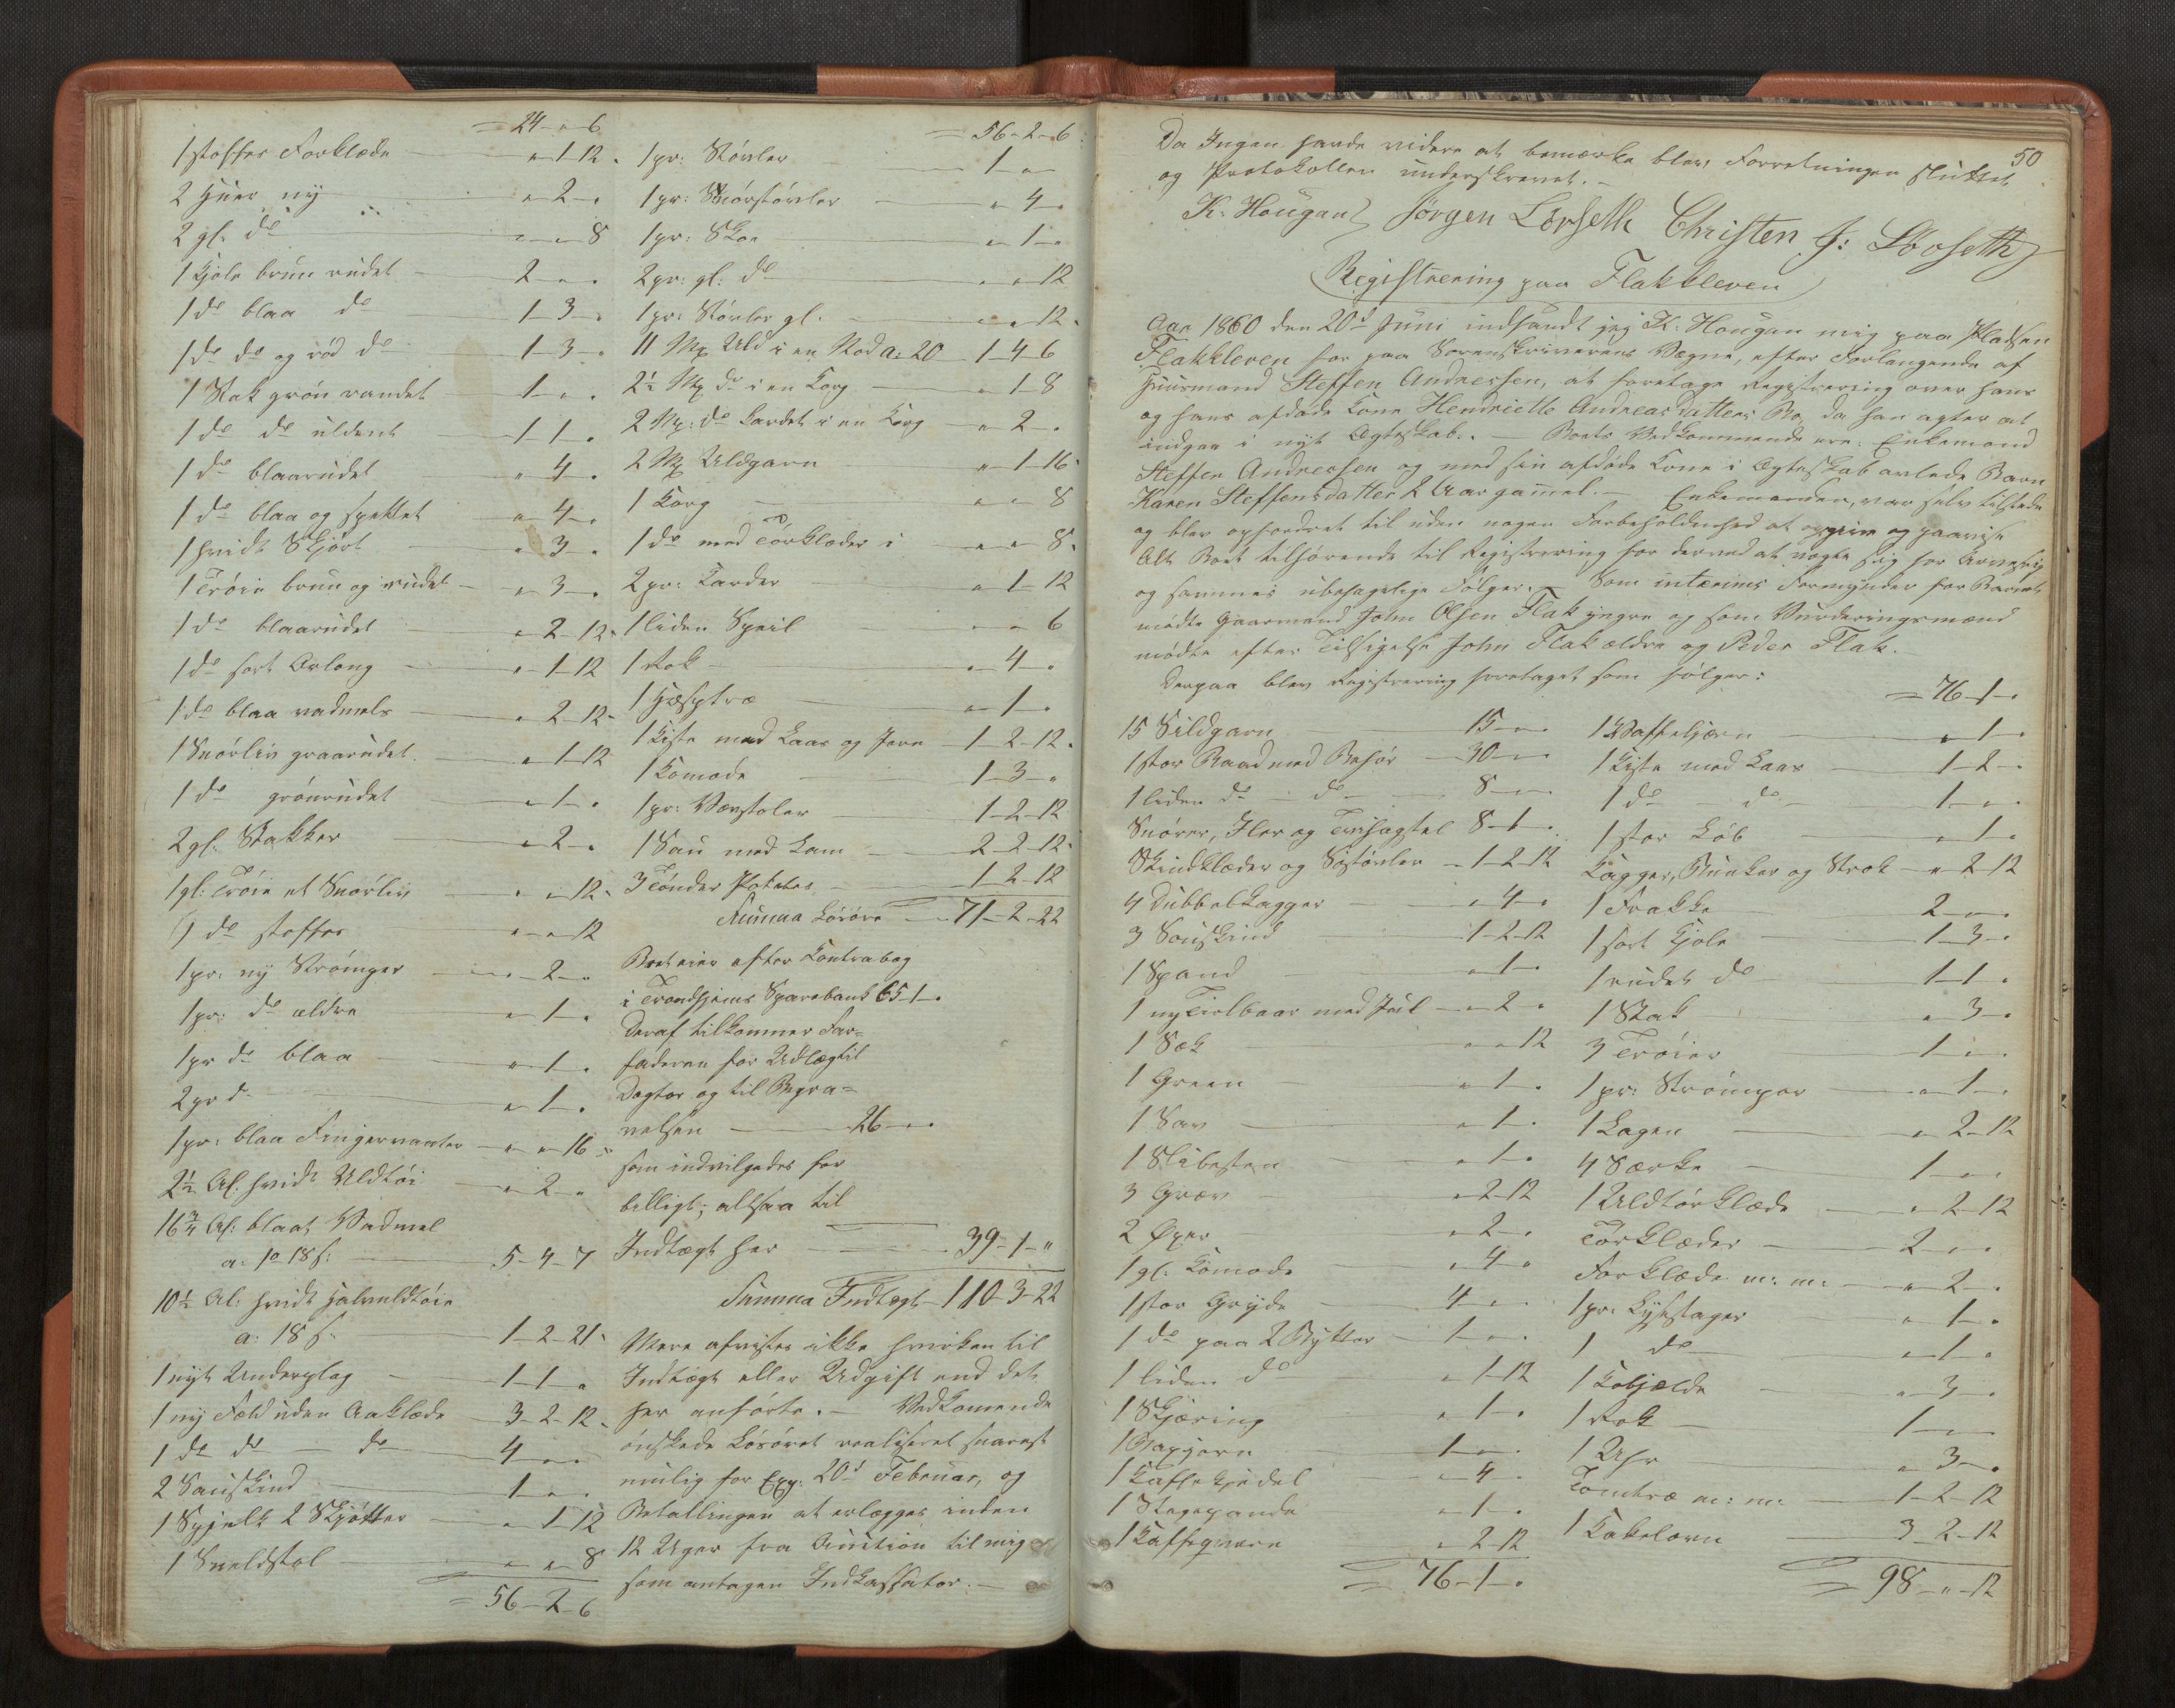 = 24 - " - 6
1 stoffes Forklæde — " - 1 - 12.
2 Huer ny — " - 2 - "
2 gl: do — " - " - 8
1 Kjole brun rudet — 2 - " - "
1 do blaa do — 1 - 3 - "
1 do do og rød do — 1 - 3 - "
1 Stak grøn randet — 1 - " - "
1 do do uldent — 1 - 1 - "
1 do blaarudet — " - 4 - "
1 do blaa og spettet — " - 4 - "
1 hvidt Skjørt — " - 3 - "
1 Trøie brun og rudet — " - 3 - "
1 do blaarudet — " - 2 - 12.
1 do sort — " - 1 - 12
1 do blaa vadmels — " - 2 - 12.
1 Snørliv graarudet — " - 1 - 12
1 do grønrudet — " - 1 - "
2 gl. Stakker — " - 2 - "
1 gl: Trøie et Snørliv — " - " - 12.
1 do stoffes — " - " - 12
1 pr: ny Strømper — " - 2 - "
1 pr: do ældre — " - 1 - "
1 pr do blaa — " - 1 - "
2 pr do — " - 1 - "
1 pr: blaa Fingervanter — " - " - 16
2½ Al: hvidt Uldtøi — " - 2 - "
16¾ Al: blaat Vadmel
a: 1 o 18 s: — 5 - 4 - 7
10½ Al: hvidt Halvuldtøie
a: 18 s: — 1 - 2 - 21.
1 nyt Underplag — 1 - 1 - "
1 ny Feld uden Aaklæde — 3 - 2 - 12.
1 do do — do — 4 - " - "
2 Sauskind — 1 - " - "
1 Spjelk 2 Skjøtter — " - 1 - 12
1 Sneldstol — " - " - 8
= 56 - 2 - 6
= 56 - 2 - 6
1 pr: Støvler — 1 - " - "
1 pr: Snørstøvler — " - 4 - "
1 pr: Skoe — " - 1 - "
2 pr: gl: do — " - " - 12
1 pr: Støvler gl. — " - " - 12.
11 Mp Uld i en a: 20 — 1 - 4 - 6
2½ Mp do i en Korg — " - 1 - 8
2 Mp: do kardet i en Korg — " - 2 - "
2 Mp Uldgarn — " - 1 - 16.
1 Korg — " - " - 8
1 do med Tørklæder i — " - " - 8.
2 pr: Karder — " - 1 - 12
1 liden Speil — " - " - 6
1 Rok — " - 4 - "
1 Hæsptræ — " - 1 - "
1 Kiste med Laas og Jern — 1 - 2 - 12.
1 Komode — 1 - 3 - "
1 pr: Vævstoler — 1 - 2 - 12
1 Sau med Lam — 2 - 2 - 12.
3 Tønder Potetes — 1 - 2 - 12
Summa Løsøre — 71 - 2 - 22
Boet eier efter Kontrabog
i Trondhjems Sparebank 65 - 1 - "
Deraf tilkommer Far-
faderen for Udlæg til
Dogtor og til Begra-
velsen — 26 - " - "
som indvilgedes for
billigt; altsaa til
Indtægt her — 39 - 1 - "
Summa Indtægt — 110 - 3 - 22
Mere afvistes ikke hverken til
Indtægt eller Udgift end det
her anførte. — Vedkomende
ønskede Løsøret realiseret snarest
mulig for Exp: 20d Februar, og
Betallingen at erlægges inden
12 Uger fra Auction til mig
som antagen Indkassator. —
50
Da Ingen havde videre at bemærke blev Forretningen sluttet
og Protokollen underskrevet. —
K: Hougan Jørgen Lørseth Christen J: Lørseth
Registrering paa Flakkleven
Aar 1860 den 20d Juni indfandt jeg K: Hougan mig paa Pladsen
Flakkleven for paa Sorenskriverens Vegne, efter Forlangende af
Huusmand Steffen Andreassen, at foretage Registrering over hans
og hans afdøde Kone Hendriette Andreasdatters Bo, da han agter at
indgaa i nyt Ægteskab. — Boets Vedkommende ere: Enkemand
Steffen Andreasen og med sin afdøde Kone i Ægteskab avlede Barn
Karen Steffensdatter 2 Aar gammel. — Enkemanden, var selv tilstede
og blev opfordret til uden nogen Forbeholdenhed at opgive og paavise
Alt Boet tilhørende til Registrering for derved at vogte sig for
og sammes ubehagelige Følger. — Som interims Formynder for Barnet
mødte Gaarmand John Olsen Flak yngre og som Vurderingsmænd
mødte efter Tilsigelse John Flak ældre og Peder Flak.
Derpaa blev Registrering foretaget som følger:
15 Sildgarn — 15 - " - "
1 stor Baad med Behør — 30 - " - "
1 liden do — do — 8 - " - "
Snører, Iler og — 8 - 1 - "
Skindklæder og Søstøvler — 1 - 2 - 12
4 Dubbelkagger — " - 4 - "
3 Souskind — 1 - 2 - 12
1 Spand — " - 1 - "
1 ny Tirlbaar med Hul — " - 2 - "
1 Sæk — " - " - 12
1 Green — " - 1 - "
1 Sav — " - 1 - "
1 Slibesten — " - 1 - "
3 Græv — " - 2 - 12
2 Øxer — " - 2 - "
1 gl. Komode — " - 4 - "
1 stor Gryde — 4 - " - "
1 do paa 2 Bytter — 1 - " - "
1 liden do — " - 1 - 12
1 Skjæring — " - 1 - "
1 — 1 - " - "
1 Kaffekjedel — " - 4 - "
1 Stegepande — " - 1 - "
1 Kaffeqværn — " - 2 - 12
= 76 - 1 - "
= 76 - 1 - "
1 Vaffeljærn — " - 1 - "
1 Kiste med Laas — 1 - 2 - "
1 do — do — 1 - " - "
1 stor Løb — " - 1 - "
Kagger, Bunker og Strok — " - 2 - 12
1 Frakke — 2 - " - "
1 sort Kjole — 1 - 3 - "
1 rudet do — 1 - 1 - "
1 Stak — " - 3 - "
3 Trøier — 1 - " - "
1 pr: Strømper — " - 1 - "
1 Lagen — " - 2 - 12
4 Særke — 1 - " - "
1 Uldtørklæde — " - 2 - 12
Tørklæder — 2 - " - "
Forklæde m: m: — " - 2 - "
1 pr: Lysestager — " - 1 - "
1 do — " - 1 - "
1 Kobjælde — " - 3 - "
1 Rok — 1 - " - "
1 Uhr — " - 3 - "
Tomtræ m: m: — 1 - 2 - 12
1 Kakelovn — 3 - 2 - 12
= 98 - " - 12